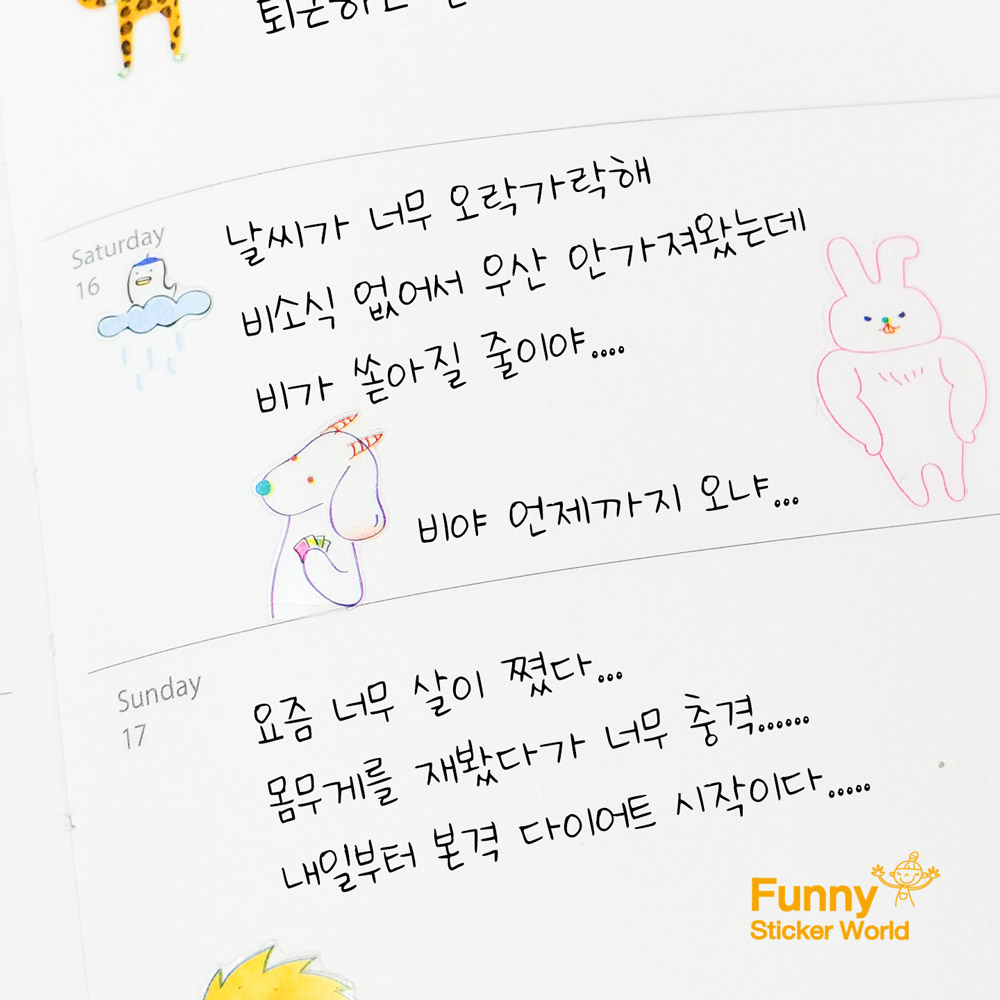 퇴근하고
Saturday
16
날씨가 너무 오락가락해
비소식 없어서 우산 안가져왔는데
비가 쏟아질 줄이야....
비야 언제까지 오냐...
Sunday
17
요즘 너무 살이 쪘다...
몸무게를 재봤다가 너무 충격......
내일부터 본격 다이어트 시작이다.....
Funny
Sticker World